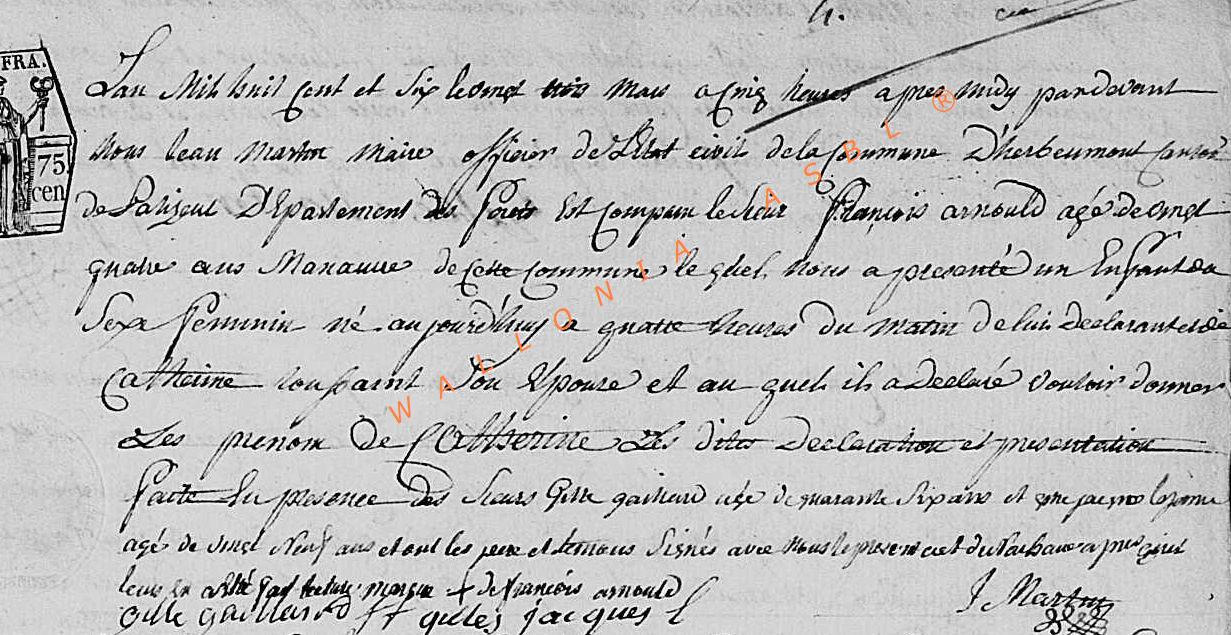 4.
FRA.
75.
cen
L'an Mil huit Cent et Six le vingt trois Mars a Cinq heures apres midy pardevant
Nous Jean Martin Maire officier de L'Etat civil de la Commune D'herbeumont Canton
de Paliseul Département des Forets Est Comparu le Sieur François arnould agé de vingt
quatre ans Manœuvre de Cette Commune le quel Nous a presenté un Enfant du
Sexe Feminin né aujourd'huy a quatre heures du matin de lui Declarant et de
Catherine toussaint Son Epouse et au quel il a Declaré Vouloir donner
Les prenom De Catherine Les dites Declaration et presentation
Faite En presence des Sieurs Gille gaillard agé de quarante Six ans et jacques
agé de vingt Neuf ans et ont les pere et temous Signés avec Nous le present acte de Naissance apres qu'il
leur en a été fait lecture marque + de François arnould
gille gaillard gilles jacques J Martin
WALLONIA ASBL ®